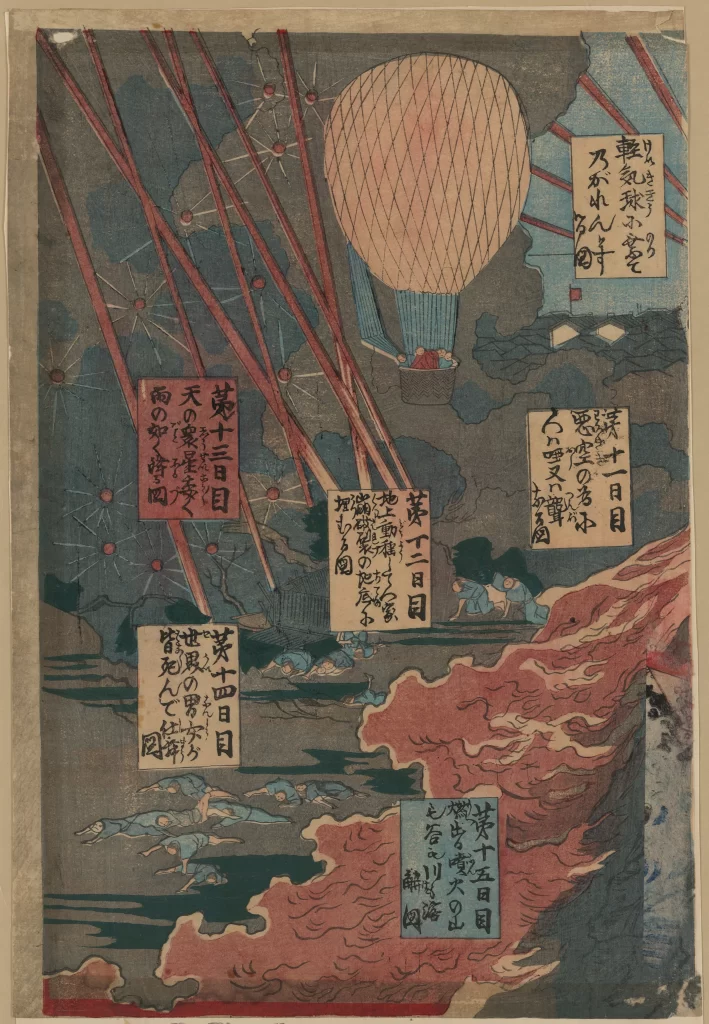 軽気球に乗て
のがれんとす
る図
第十一日目
悪空の為に
人ハ唖又ハ聾
となる図
第十二日目
地上動揺して人家
崩破裂の地底に
埋むる図
第十三日目
天の衆星悉く
雨の如く降る図
第十四日目
世界の男女が
皆死んで仕舞
図
第十五日目
燃出る噴火の山
も谷も川も溶
解図